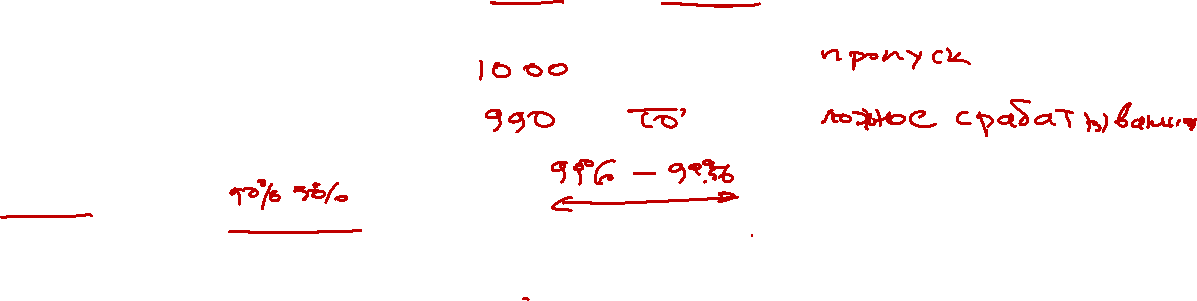 1000 пропуск
990 10 ложное срабатывание
99% - 99%
50% 50%